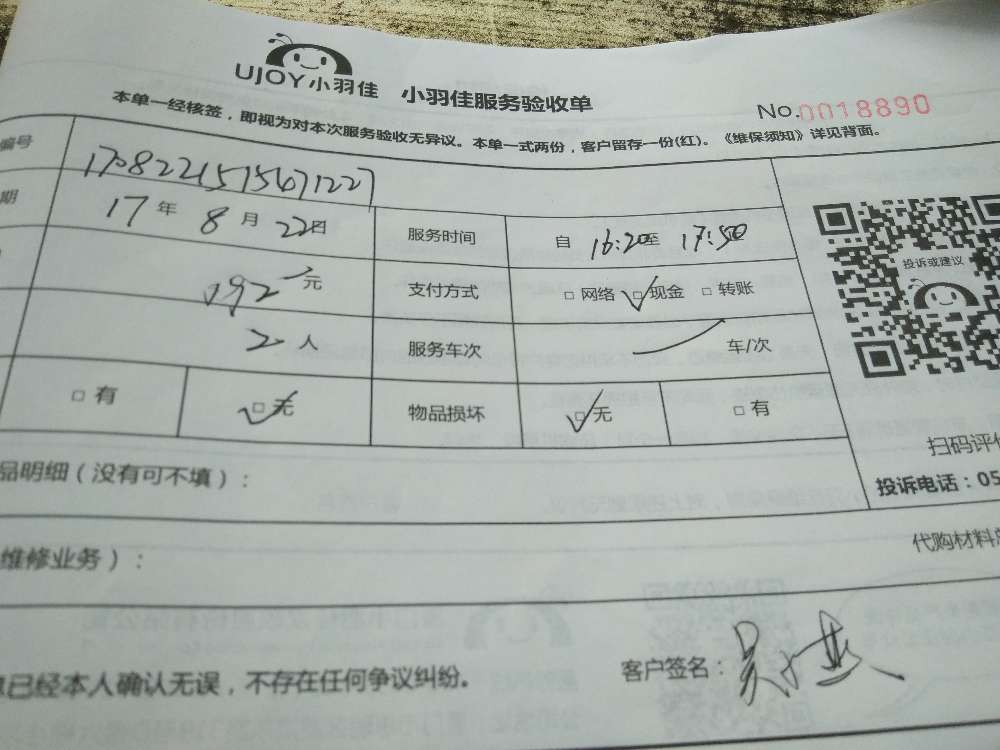 UJOY小羽佳 小羽佳服务验收单
No.0018890
本单一经核签，即视为对本次服务验收无异议。本单一式两份，客户留存一份(红)。《维保须知》详见背面。
编号 1708221515671227
期 17年8月22日 服务时间 自16:20至17:50
192元 支付方式 □网络 □现金 □转账
2人 服务车次 车/次
□有 □无 物品损坏 □无 □有
投诉或建议
扫码评价
投诉电话：05
品明细（没有可不填）：
维修业务）：
代购材料
息已经本人确认无误，不存在任何争议纠纷。
客户签名：吴